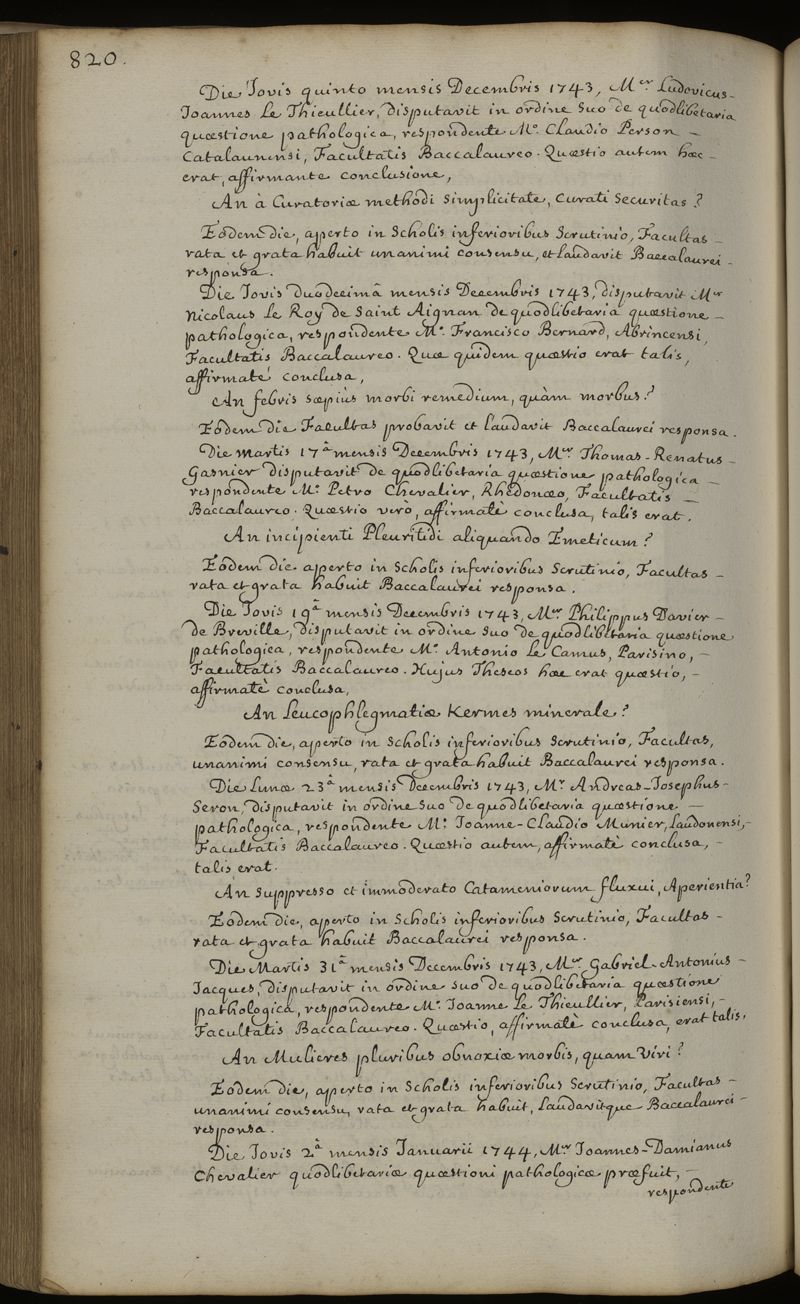 820.
Die Jovis quinto mensis Decembris 1743, Mer Ludovicus-
Joannes Le Thieullier, disputavit in ordine suo de quodlibetaria
quæstione pathologica, respondente Mo. Claudio Person -
Catalaunensi, Facultatis Baccalaureo. Quæstio autem hæc -
erat, affirmante conclusione,
An à Curatoriæ methodi simplicitate, curati securitas?
Eodem die, aperto in Scholis inferioribus Scrutinio, Facultas -
rata et grata habuit unanimi consensu, et laudavit Baccalaurei -
responsa.
Die Jovis duodecimâ mensis Decembris 1743, disputavit Mer
Nicolaus Le Roy de Saint Aignan de quodlibetaria quæstione -
pathologica, respondente Mo. Francisco Bernard, Abrincensi,
Facultatis Baccalaureo. Quæ quidem quæstio erat talis,
affirmatè conclusa,
An febris sæpiùs morbi remedium, quàm morbus?
Eodem die Facultas probavit et laudavit Baccalaurei responsa.
Die Martis 17â mensis Decembris 1743, Mer Thomas-Renatus -
Gasnier disputavit de quodlibetaria quæstione pathologica -
respondente Mo. Petro Chevalier, Rhedonæo, Facultatis -
Baccalaureo. Quæstio verò, affirmatè conclusa, talis erat.
An incipienti Pleuritidi aliquando Emeticum?
Eodem die aperto in Scholis inferioribus Scrutinio, Facultas -
rata et grata habuit Baccalaurei responsa.
Die Jovis 19â mensis Decembris 1743, Mer. Philippus Davier -
de Breville, disputavit in ordine suo de quodlibetaria quæstione
pathologica, respondente Mo. Antonio Le Camus, Parisino, -
Facultatis Baccalaureo. Hujus Theseos hæc erat quæstio, -
affirmatè conclusa,
An Leucophlegmatiæ Kermes minerale?
Eodem die, aperto in Scholis inferioribus Scrutinio, Facultas,
unanimi consensu, rata et grata habuit Baccalaurei responsa.
Die Lunæ 23â mensis Decembris 1743, Mr. Andreas-Josephus-
Seron, disputavit in ordine suo de quodlibetaria quæstione -
pathologica, respondente Mo. Joanne-Claudio Munier, Laudonensi, -
Facultatis Baccalaureo. Quæstio autem, affirmatè conclusa, -
talis erat.
An suppresso et immoderato Catameniorum fluxui, Aperientia?
Eodem die, aperto in Scholis inferioribus Scrutinio, Facultas -
rata et grata habuit Baccalaurei responsa.
Die Martis 31â mensis Decembris 1743, Mer. Gabriel-Antonius -
Jacques, disputavit in ordine suo de quodlibetaria quæstione
pathologica, respondente Mo. Joanne Le Thieullier, Parisiensi, -
Facultatis Baccalaureo. Quæstio, affirmatè conclusa, erat talis.
An Mulieres pluribus obnoxiæ morbis, quam Viri?
Eodem die, aperto in Scholis inferioribus Scrutinio, Facultas -
unanimi consensu, rata et grata habuit, laudavitque Baccalaurei -
responsa.
Die Jovis 2â mensis Januarii 1744, Mer Joannes-Damianus
Chevalier quodlibetariæ quæstioni pathologicæ præfuit, -
respondente